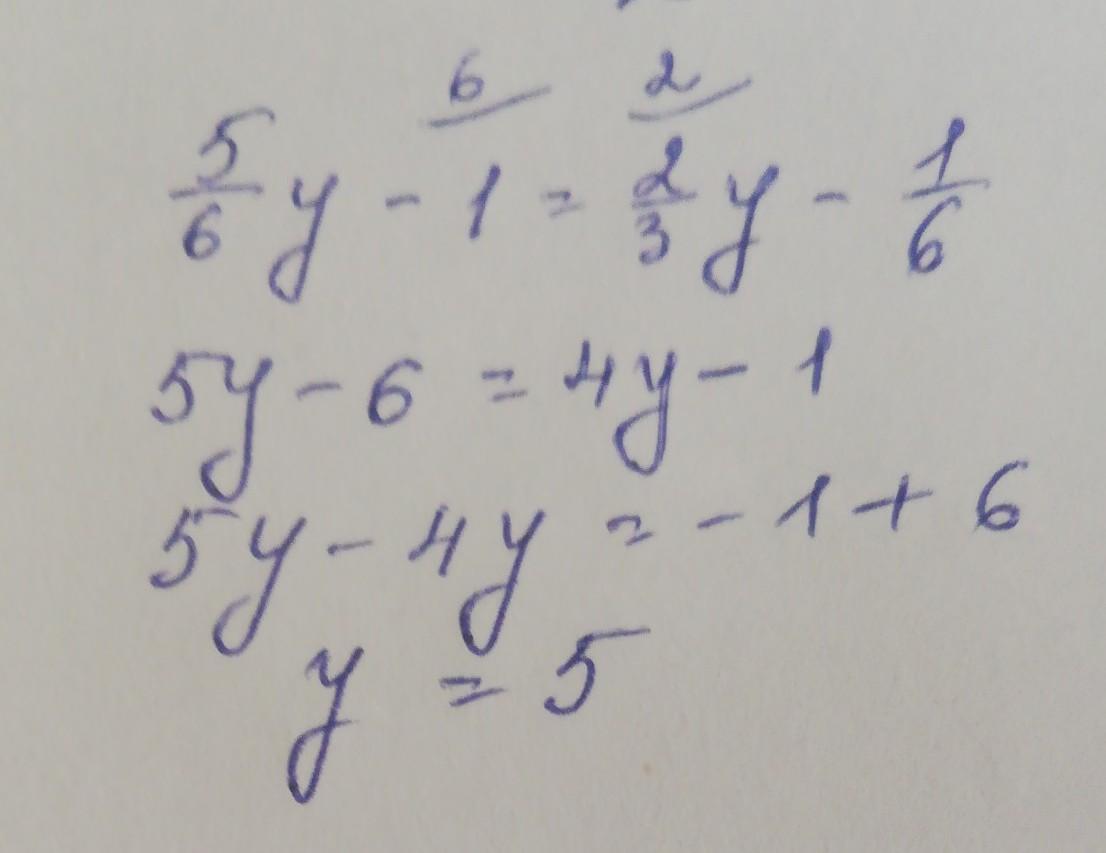 6 2
5/6 y - 1 = 2/3 y - 1/6
5y - 6 = 4y - 1
5y - 4y = - 1 + 6
y = 5